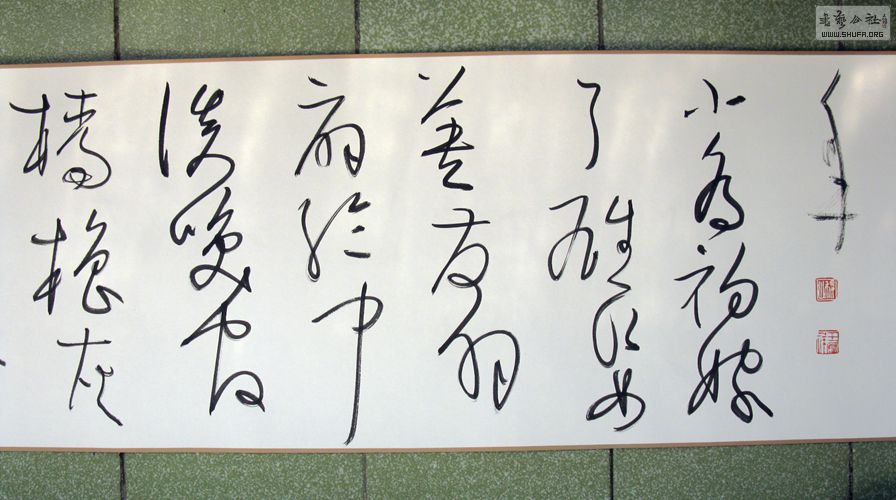 書藝公社
WWW.SHUFA.ORG
小喬初嫁
了雄姿
英發羽
扇綸巾
談笑間
檣櫓灰